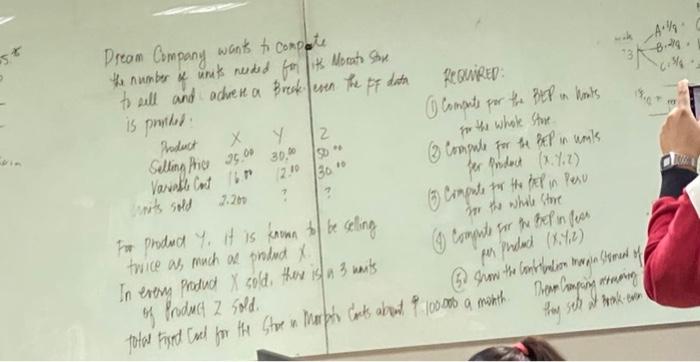 Dream Company wants to compute
the number of units needed for its Morato Store
to sell and achieve a Break-even. The ff data
is provided:
Product X Y Z
Selling Price 25.00 30.00 50.00
Variable Cost 16.00 12.00 30.00
units sold 2.200 ? ?
For product Y, it is known to be selling
twice as much as product X.
In every Product X sold, there is a 3 units
of Product Z sold.
Total Fixed Cost for the Store in Costs about ₱ 100.000 a month.
REQUIRED:
① Compute for the BEP in units
for the whole Store.
② Compute for the BEP in units
per Product (X,Y,Z)
③ Compute for the BEP in Peso
for the whole Store
④ Compute for the BEP in
per product (X,Y,Z)
⑤ Show the Contribution margin of
Dream Company assuming
they sell at Break-even
A
B
C